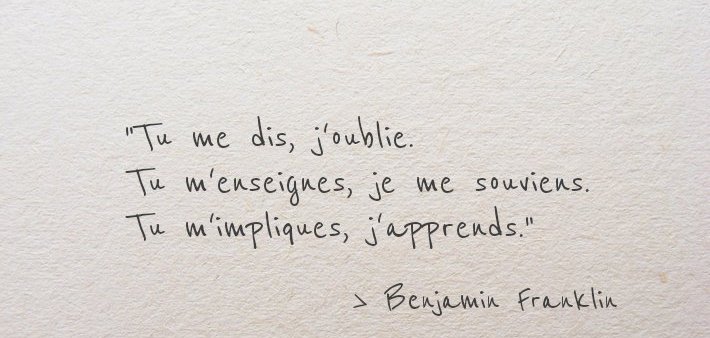 "Tu me dis, j'oublie.
Tu m'enseignes, je me souviens.
Tu m'impliques, j'apprends."
> Benjamin Franklin